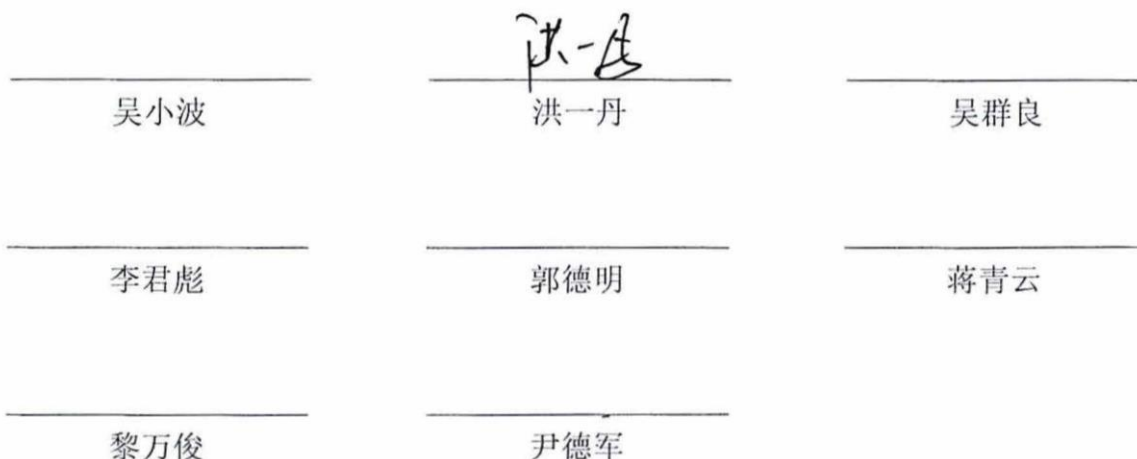 洪一丹
吴小波 洪一丹 吴群良
李君彪 郭德明 蒋青云
黎万俊 尹德军